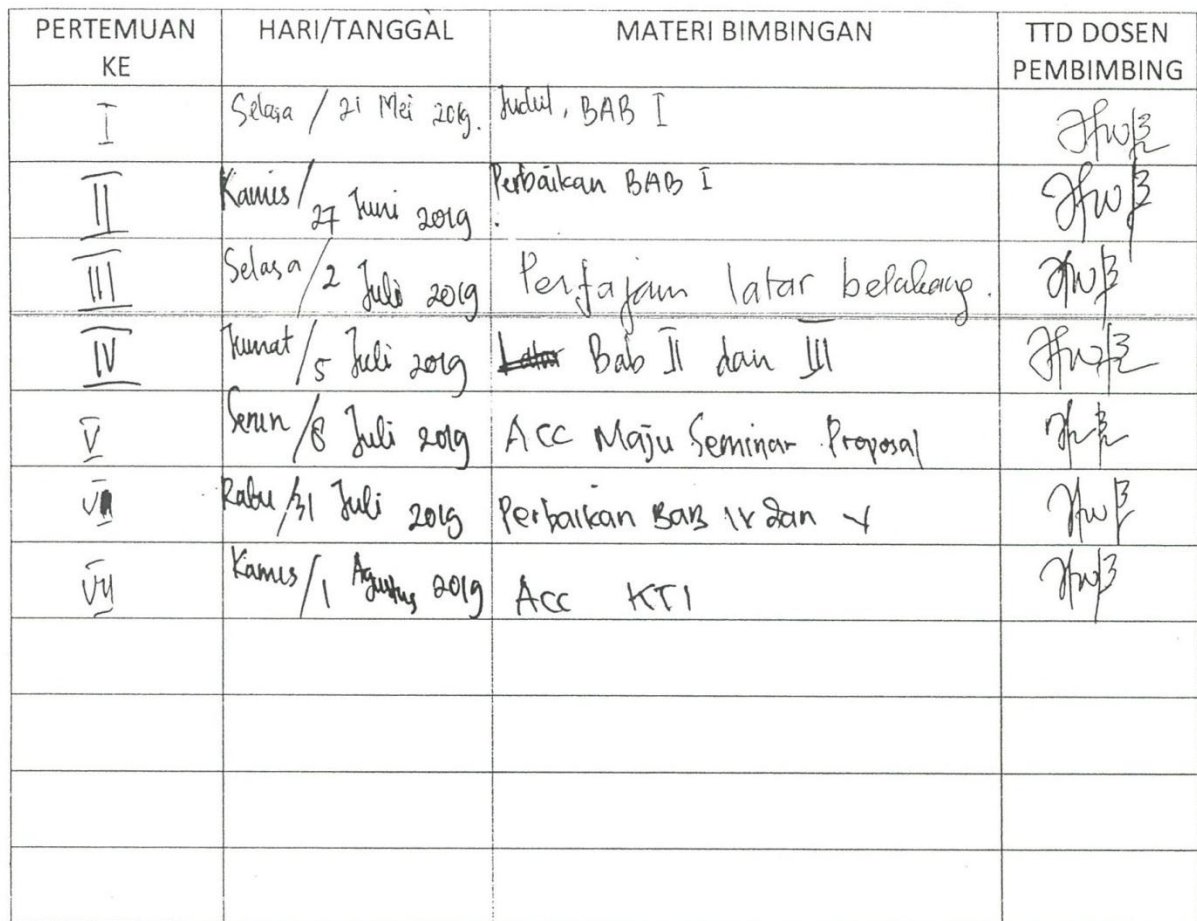 PERTEMUAN KE HARI/TANGGAL MATERI BIMBINGAN TTD DOSEN PEMBIMBING
I Selasa / 21 Mei 2019. Judul, BAB I
II Kamis / 27 Juni 2019 Perbaikan BAB I
III Selasa / 2 Juli 2019 Pertajam latar belakang.
IV Jumat / 5 Juli 2019 Bab II dan III
V Senin / 8 Juli 2019 ACC Maju Seminar Proposal
Rabu / 31 Juli 2019 Perbaikan BAB IV dan V
Kamis / 1 Agustus 2019 Acc KTI